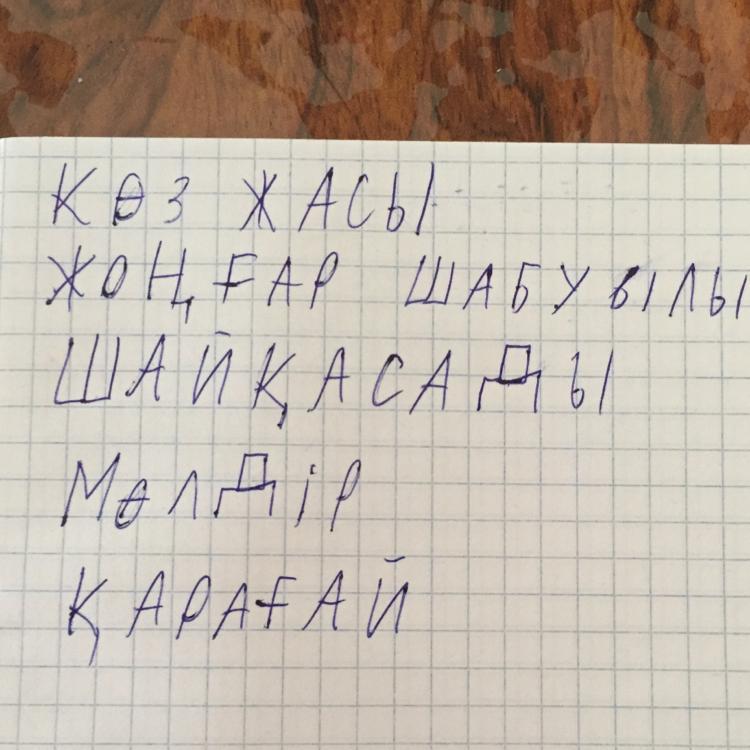 КӨЗ ЖАСЫ
ЖОҢҒАР ШАБУЫЛЫ
ШАЙҚАСАДЫ
МӨЛДІР
ҚАРАҒАЙ